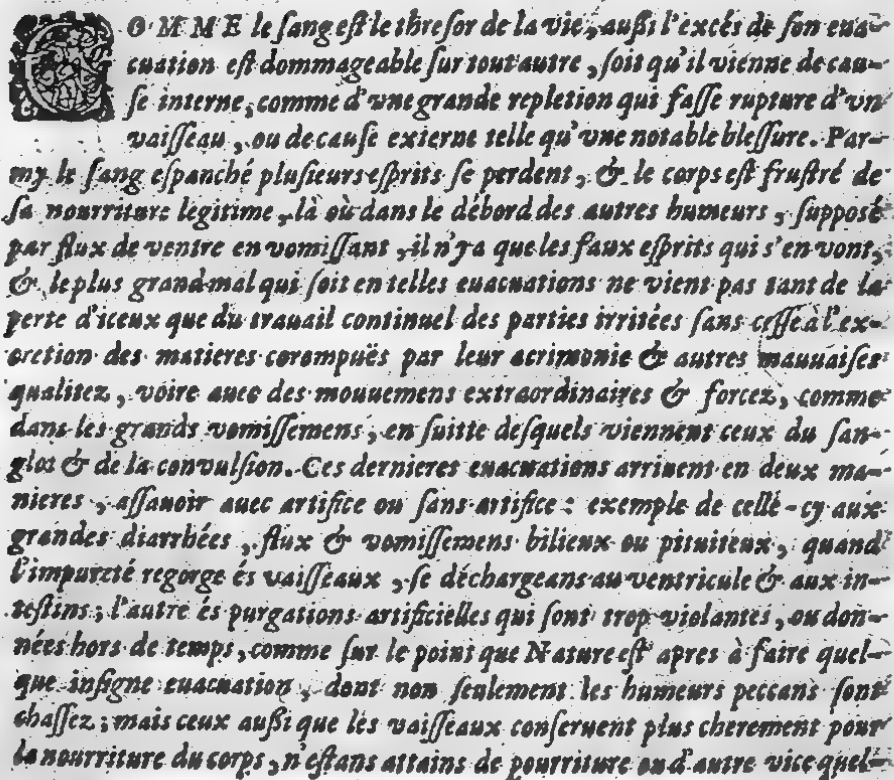 COMME le ſang eſt le threſor de la vie, auſſi l'excés de ſon eua-
cuation eſt dommageable ſur tout autre, ſoit qu'il vienne de cau-
ſe interne, comme d'vne grande repletion qui faſſe rupture d'vn
vaiſſeau, ou de cauſe externe telle qu'vne notable bleſſure. Par-
my le ſang eſpanché pluſieurs eſprits ſe perdent, & le corps eſt fruſtré de
ſa nourriture legitime, là où dans le débord des autres humeurs, ſuppoſé
par flux de ventre en vomiſſant, il n'y a que les faux eſprits qui s'en vont,
& le plus grand mal qui ſoit en telles euacuations ne vient pas tant de la
perte d'iceux que du trauail continuel des parties irritées ſans ceſſe à l'ex-
cretion des matieres corompuës par leur acrimonie & autres mauuaiſes
qualitez, voire auec des mouuemens extraordinaires & forcez, comme
dans les grands vomiſſemens, en ſuitte deſquels viennent ceux du ſan-
glot & de la convulſion. Ces dernieres euacuations arriuent en deux ma-
nieres, aſſauoir auec artifice ou ſans artifice : exemple de cellé-cy aux
grandes diarrhées, flux & vomiſſemens bilieux ou pituiteux, quand
l'impureté regorge és vaiſſeaux, ſe déchargeans au ventricule & aux in-
teſtins ; l'autre és purgations artificielles qui ſont trop violantes, ou don-
nées hors de temps, comme ſur le point que Nature eſt apres à faire quel-
que inſigne euacuation, dont non ſeulement les humeurs peccans ſont
chaſſez ; mais ceux auſſi que les vaiſſeaux conſeruent plus cherement pour
la nourriture du corps, n'eſtans attains de pourriture ou d'autre vice quel-